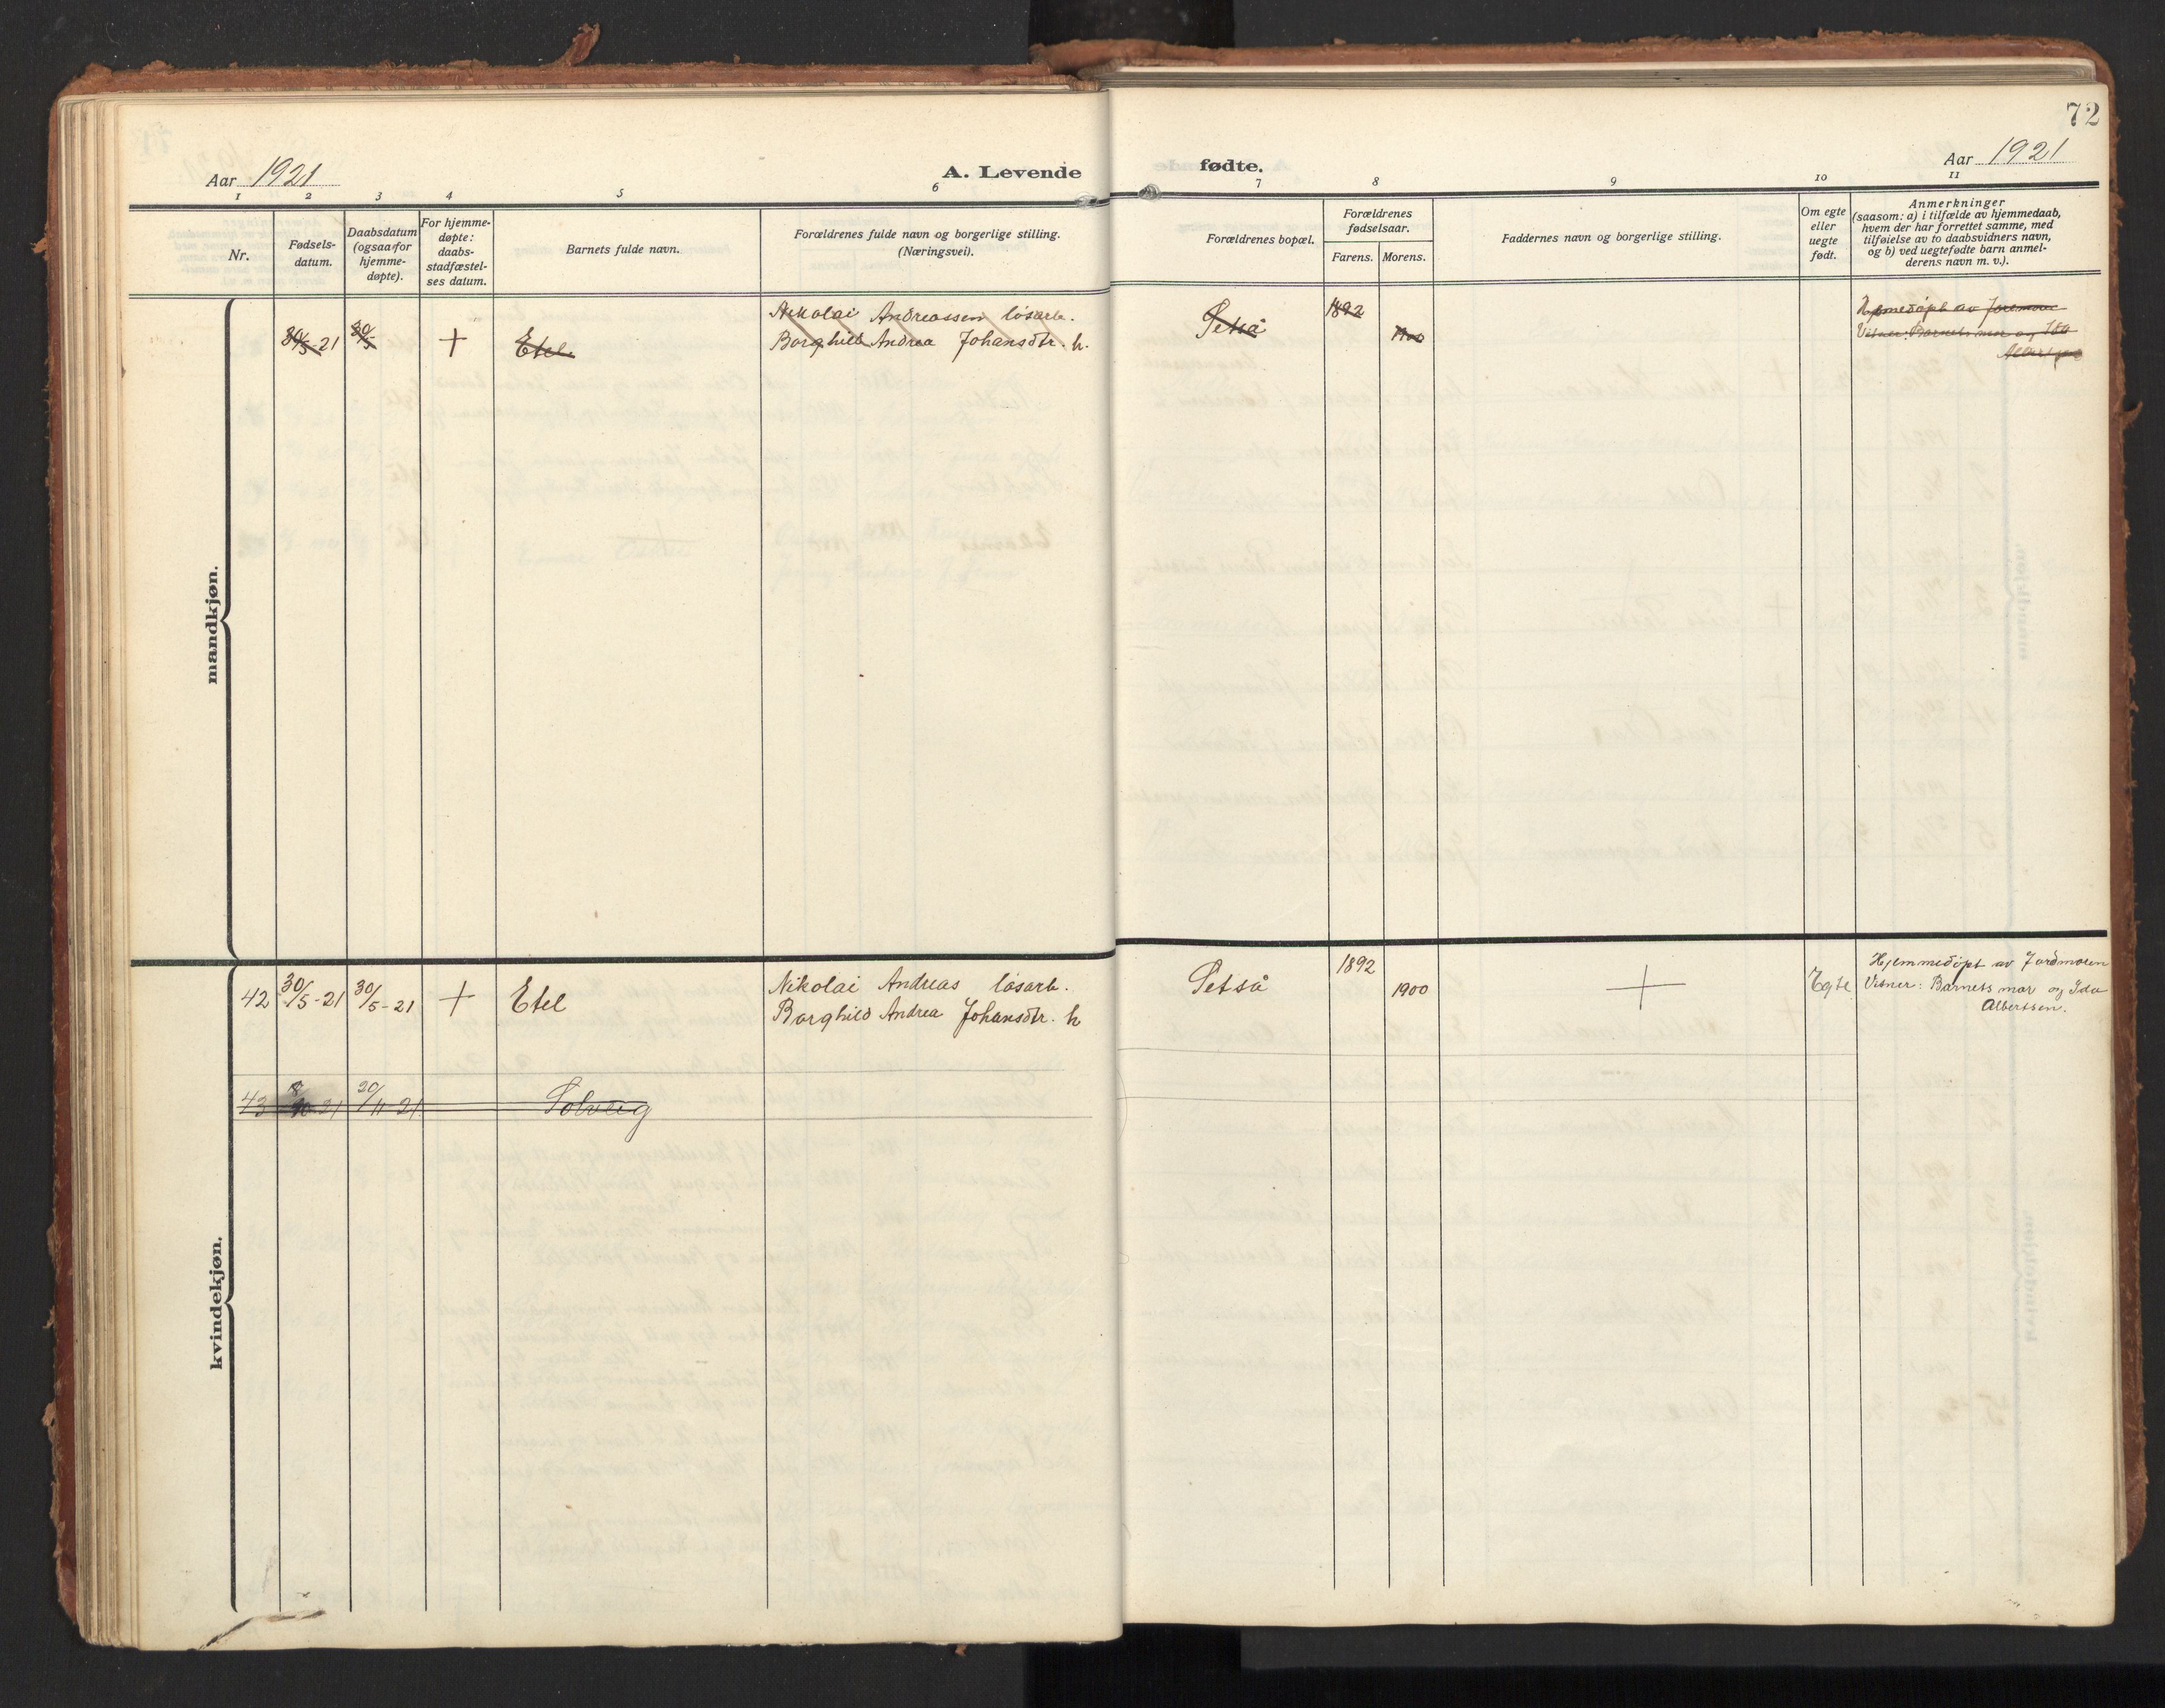 72
Aar 1921
A. Levende fødte.
Aar 1921
1 2 3 4 5 6 7 8 9 10 11
Nr.
Fødsels-
datum.
Daabsdatum
(ogsaa for
hjemme-
døpte).
For hjemme-
døpte:
daabs-
stadfæstel-
ses datum.
Barnets fulde navn.
Forældrenes fulde navn og borgerlige stilling.
(Næringsvei).
Forældrenes bopæl.
Forældrenes
fødselsaar.
Farens. Morens.
Faddernes navn og borgerlige stilling.
Om egte
eller
uegte
født.
Anmerkninger
(saasom: a) i tilfælde av hjemmedaab,
hvem der har forrettet samme, med
tilføielse av to daabsvidners navn,
og b) ved uegtefødte barn anmel-
derens navn m. v.).
mandkjøn.
30/5-21 + Etel
Nikolai Andreassen løsarb.
Borghild Andrea Johansdtr. h.
Setså 1892 1900
Hjemmedøpt av Jordmoren
Vitner: Barnets mor og Ida
kvindekjøn.
42 30/5-21 30/5-21 + Etel
Nikolai Andreas løsarb.
Borghild Andrea Johansdtr. h
Setså 1892 1900 + Egte
Hjemmedøpt av Jordmoren
Vitner: Barnets mor og Ida
Albertsen.
43 8/10 21 20/11 21 Solveig